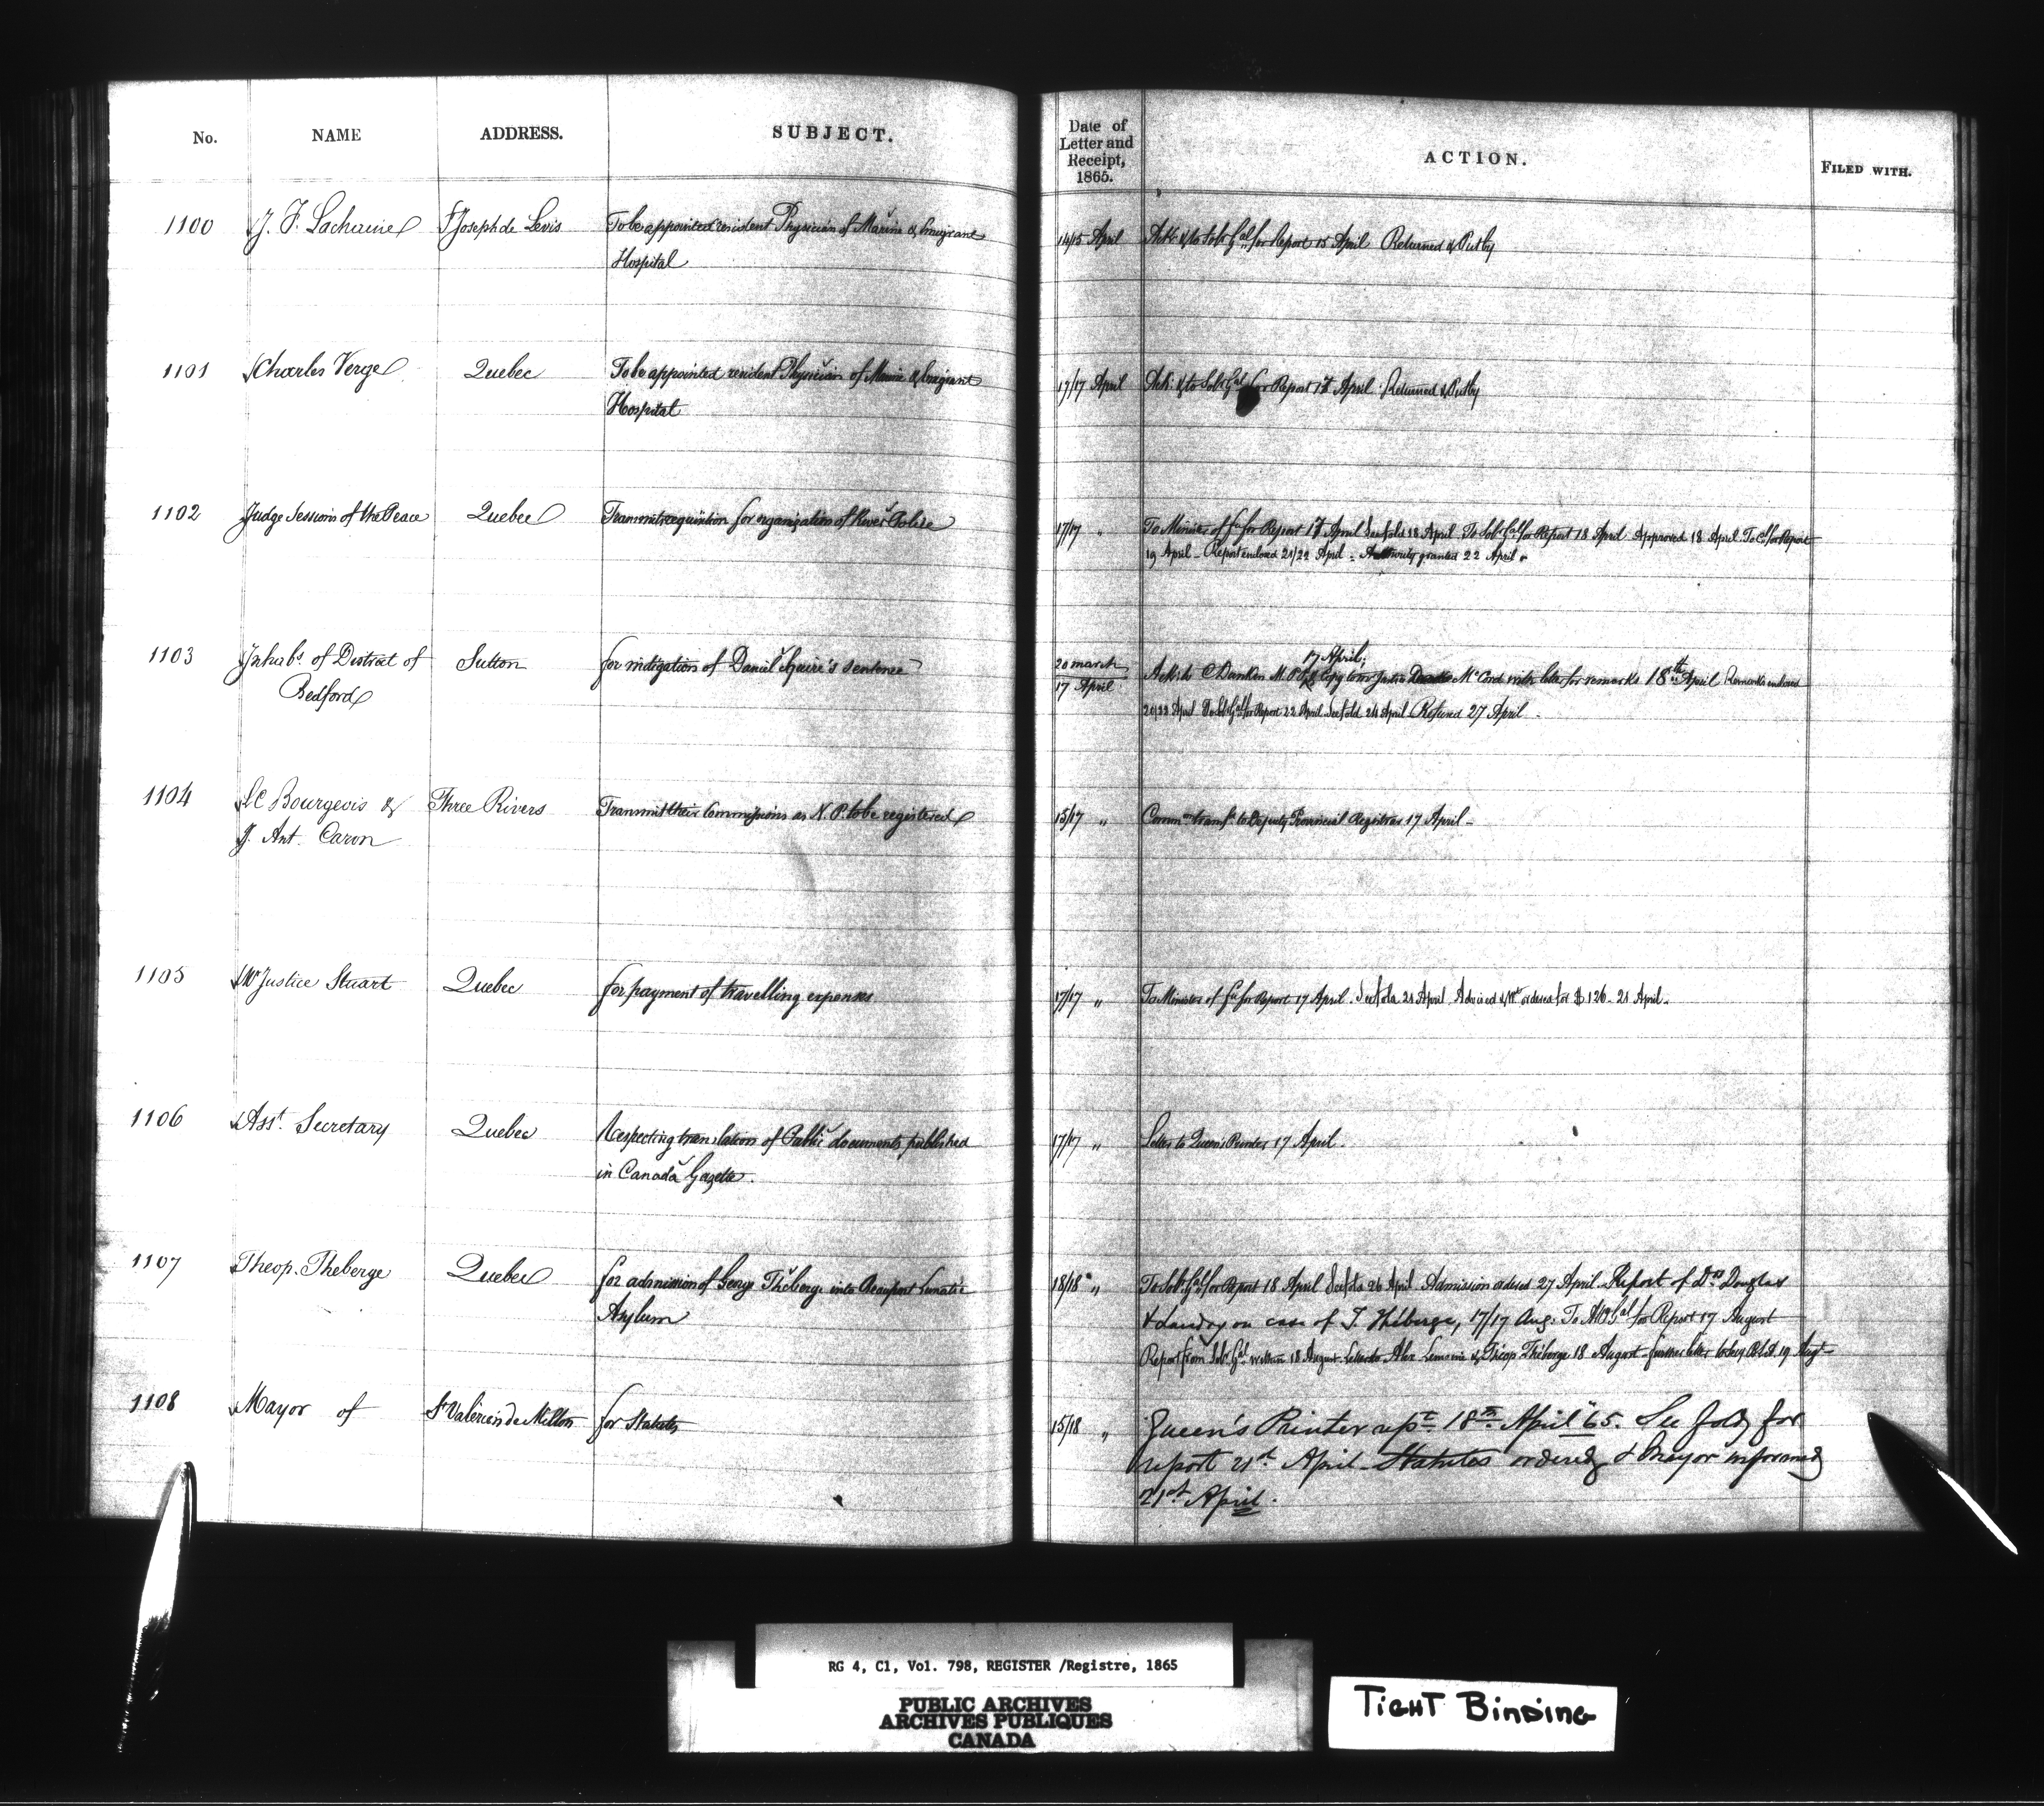 No. NAME ADDRESS. SUBJECT. Date of Letter and Receipt, 1865. ACTION. FILED WITH.
1100 J. F. Lachaine St Joseph de Levis To be appointed resident Physician of Marine & Emigrant 14/15 April Ack: & to Solr Gal for Report 15 April Returned &
Hospital
1101 Charles Verge Quebec To be appointed resident Physician of Marine & Emigrant 17/17 April Ack: & to Solr Gal for Report 17 April Returned &
Hospital
1102 Judge Sessions of the Peace Quebec Transmits requisition for organization of River Police 17/17 " To Minister of for Report 17 April See fold 18 April To Solr Gal for Report 18 April Approved 18 April To for Report
19 April - Report enclosed 21/22 April - Authority granted 22 April.
17 April
1103 Inhabts. of District of Sutton for mitigation of Daniel Squire's sentence 20 march Ack: to C Dunkin M.P.P. & Copy to Mr Justice McCord with letter for remarks 18th April Remarks enclosed
Bedford 17 April 21/22 April To Solr Gal for Report 22 April See fold 24 April Refused 27 April -
1104 L C Bourgeois & Three Rivers Transmit their Commissions as N. P. to be registered 15/17 " Commns transfd to Deputy Provincial Registrar 17 April -
J. Ant. Caron
1105 Mr Justice Stuart Quebec for payment of travelling expenses 17/17 " To Minister of for Report 17 April. See fold 21 April Advised & Wt ordered for $126 - 21 April.
1106 Asst. Secretary Quebec Respecting translation of Public documents published 17/17 " Letter to Queen's Printer 17 April.
in Canada Gazette.
1107 Theop. Theberge Quebec for admission of George Theberge into Beauport Lunatic 18/18 " To Solr Gal for Report 18 April See fold 26 April Admission ordered 27 April. Report of Drs Douglas
Asylum & Landry on case of T. Theberge, 17/17 Aug: To Atty Gal for Report 17 August
Report from Solr Gal written 18 August Letter to Alex Lemoine & Theop Theberge 18 August - further letter 19 Augt -
1108 Mayor of St Valérien de Milton for Statutes 15/18 " Queen's Printer rept 18th April '65. See fold for
report 21st April - Statutes ordered & Mayor informed
21st April.
RG 4, C1, Vol. 798, REGISTER /Registre, 1865
PUBLIC ARCHIVES
ARCHIVES PUBLIQUES
CANADA
TIGHT BINDING